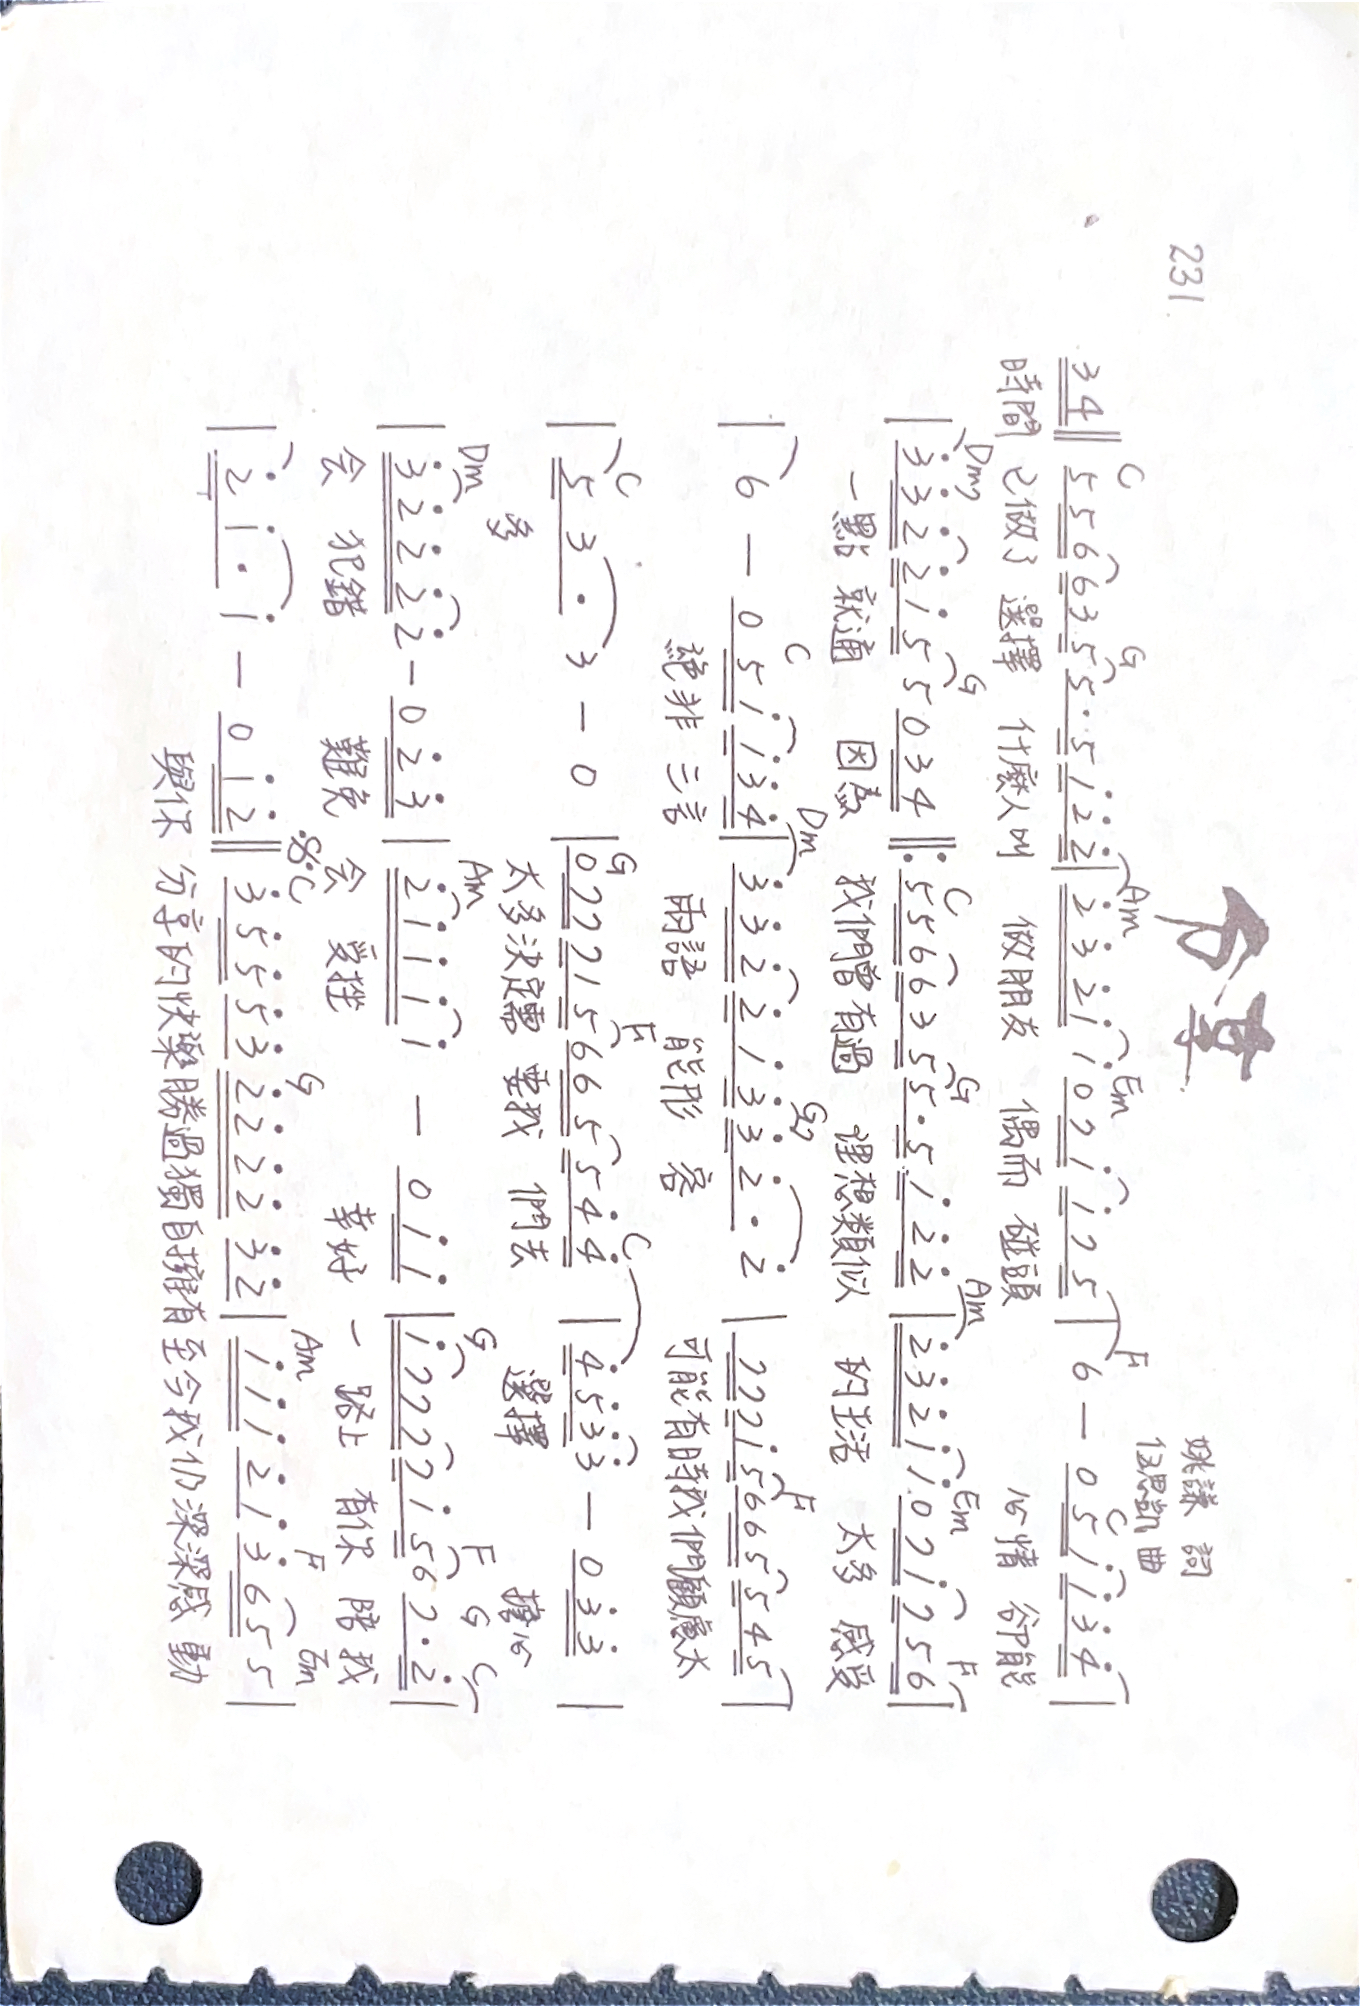 分享
231.
姚謙 詞
伍思凱 曲
C G Am Em F C
34‖5566355·5122|232110711175|6—051134|
時間 已做了 選擇 什麼人叫 做朋友 偶而 碰頭 心情 卻能
Dm7 G C G Am Em F
|3322155034‖:5566355·5122|23211071756|
一點 就通 因為 我們曾有過 理想類似 的生活 太多 感受
C Dm G7 F
|6—051134|33221332·2|77715665545|
絕非 三言 兩語 能形 容 可能有時我們顧慮太
C G F C
|53·3—0|077715665544|4533—033|
多 太多決定需 要我 們去 選擇 擔心
Dm Am G F G C
|32222—023|21111—011|177771567·2|
会 犯錯 難免 会 受挫 幸好 一 路上 有你 陪 我
𝄋 C G Am F Em
|21·1—012‖35553222232|111213655|
與你 分享的快樂勝過獨自擁有至今我仍深深感 動